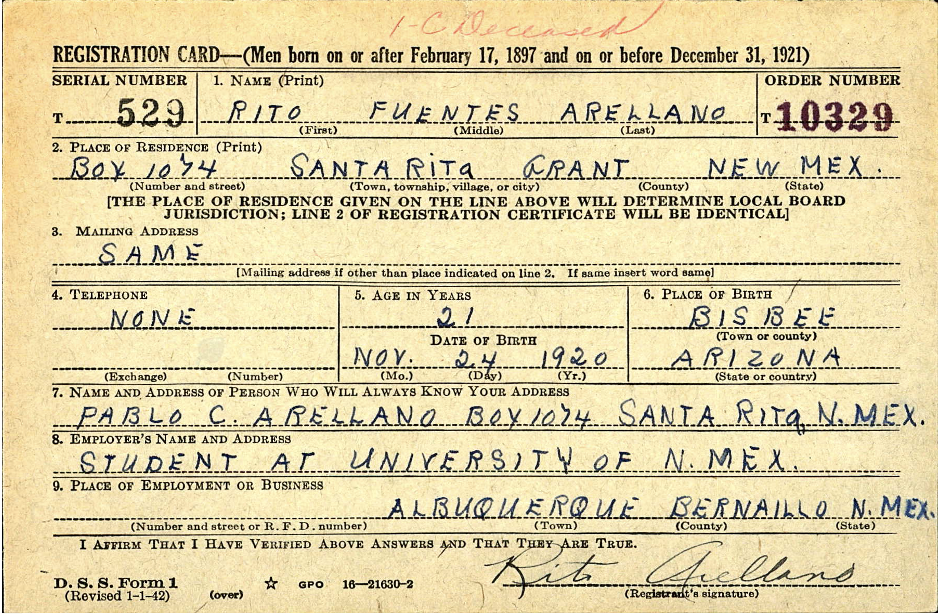 1-C Deceased
REGISTRATION CARD—(Men born on or after February 17, 1897 and on or before December 31, 1921)
SERIAL NUMBER 1. NAME (Print) ORDER NUMBER
T 529 RITO FUENTES ARELLANO T 10329
(First) (Middle) (Last)
2. PLACE OF RESIDENCE (Print)
BOX 1074 SANTA RITA GRANT NEW MEX.
(Number and street) (Town, township, village, or city) (County) (State)
[THE PLACE OF RESIDENCE GIVEN ON THE LINE ABOVE WILL DETERMINE LOCAL BOARD
JURISDICTION; LINE 2 OF REGISTRATION CERTIFICATE WILL BE IDENTICAL]
3. MAILING ADDRESS
SAME
[Mailing address if other than place indicated on line 2. If same insert word same]
4. TELEPHONE 5. AGE IN YEARS 6. PLACE OF BIRTH
NONE 21 BISBEE
DATE OF BIRTH (Town or county)
NOV. 24 1920 ARIZONA
(Exchange) (Number) (Mo.) (Day) (Yr.) (State or country)
7. NAME AND ADDRESS OF PERSON WHO WILL ALWAYS KNOW YOUR ADDRESS
PABLO C. ARELLANO BOX 1074 SANTA RITA, N. MEX.
8. EMPLOYER'S NAME AND ADDRESS
STUDENT AT UNIVERSITY OF N. MEX.
9. PLACE OF EMPLOYMENT OR BUSINESS
ALBUQUERQUE BERNAILLO N. MEX.
(Number and street or R. F. D. number) (Town) (County) (State)
I AFFIRM THAT I HAVE VERIFIED ABOVE ANSWERS AND THAT THEY ARE TRUE.
Rito Arellano
D. S. S. Form 1 ☆ GPO 16—21630-2
(Revised 1-1-42) (over) (Registrant's signature)